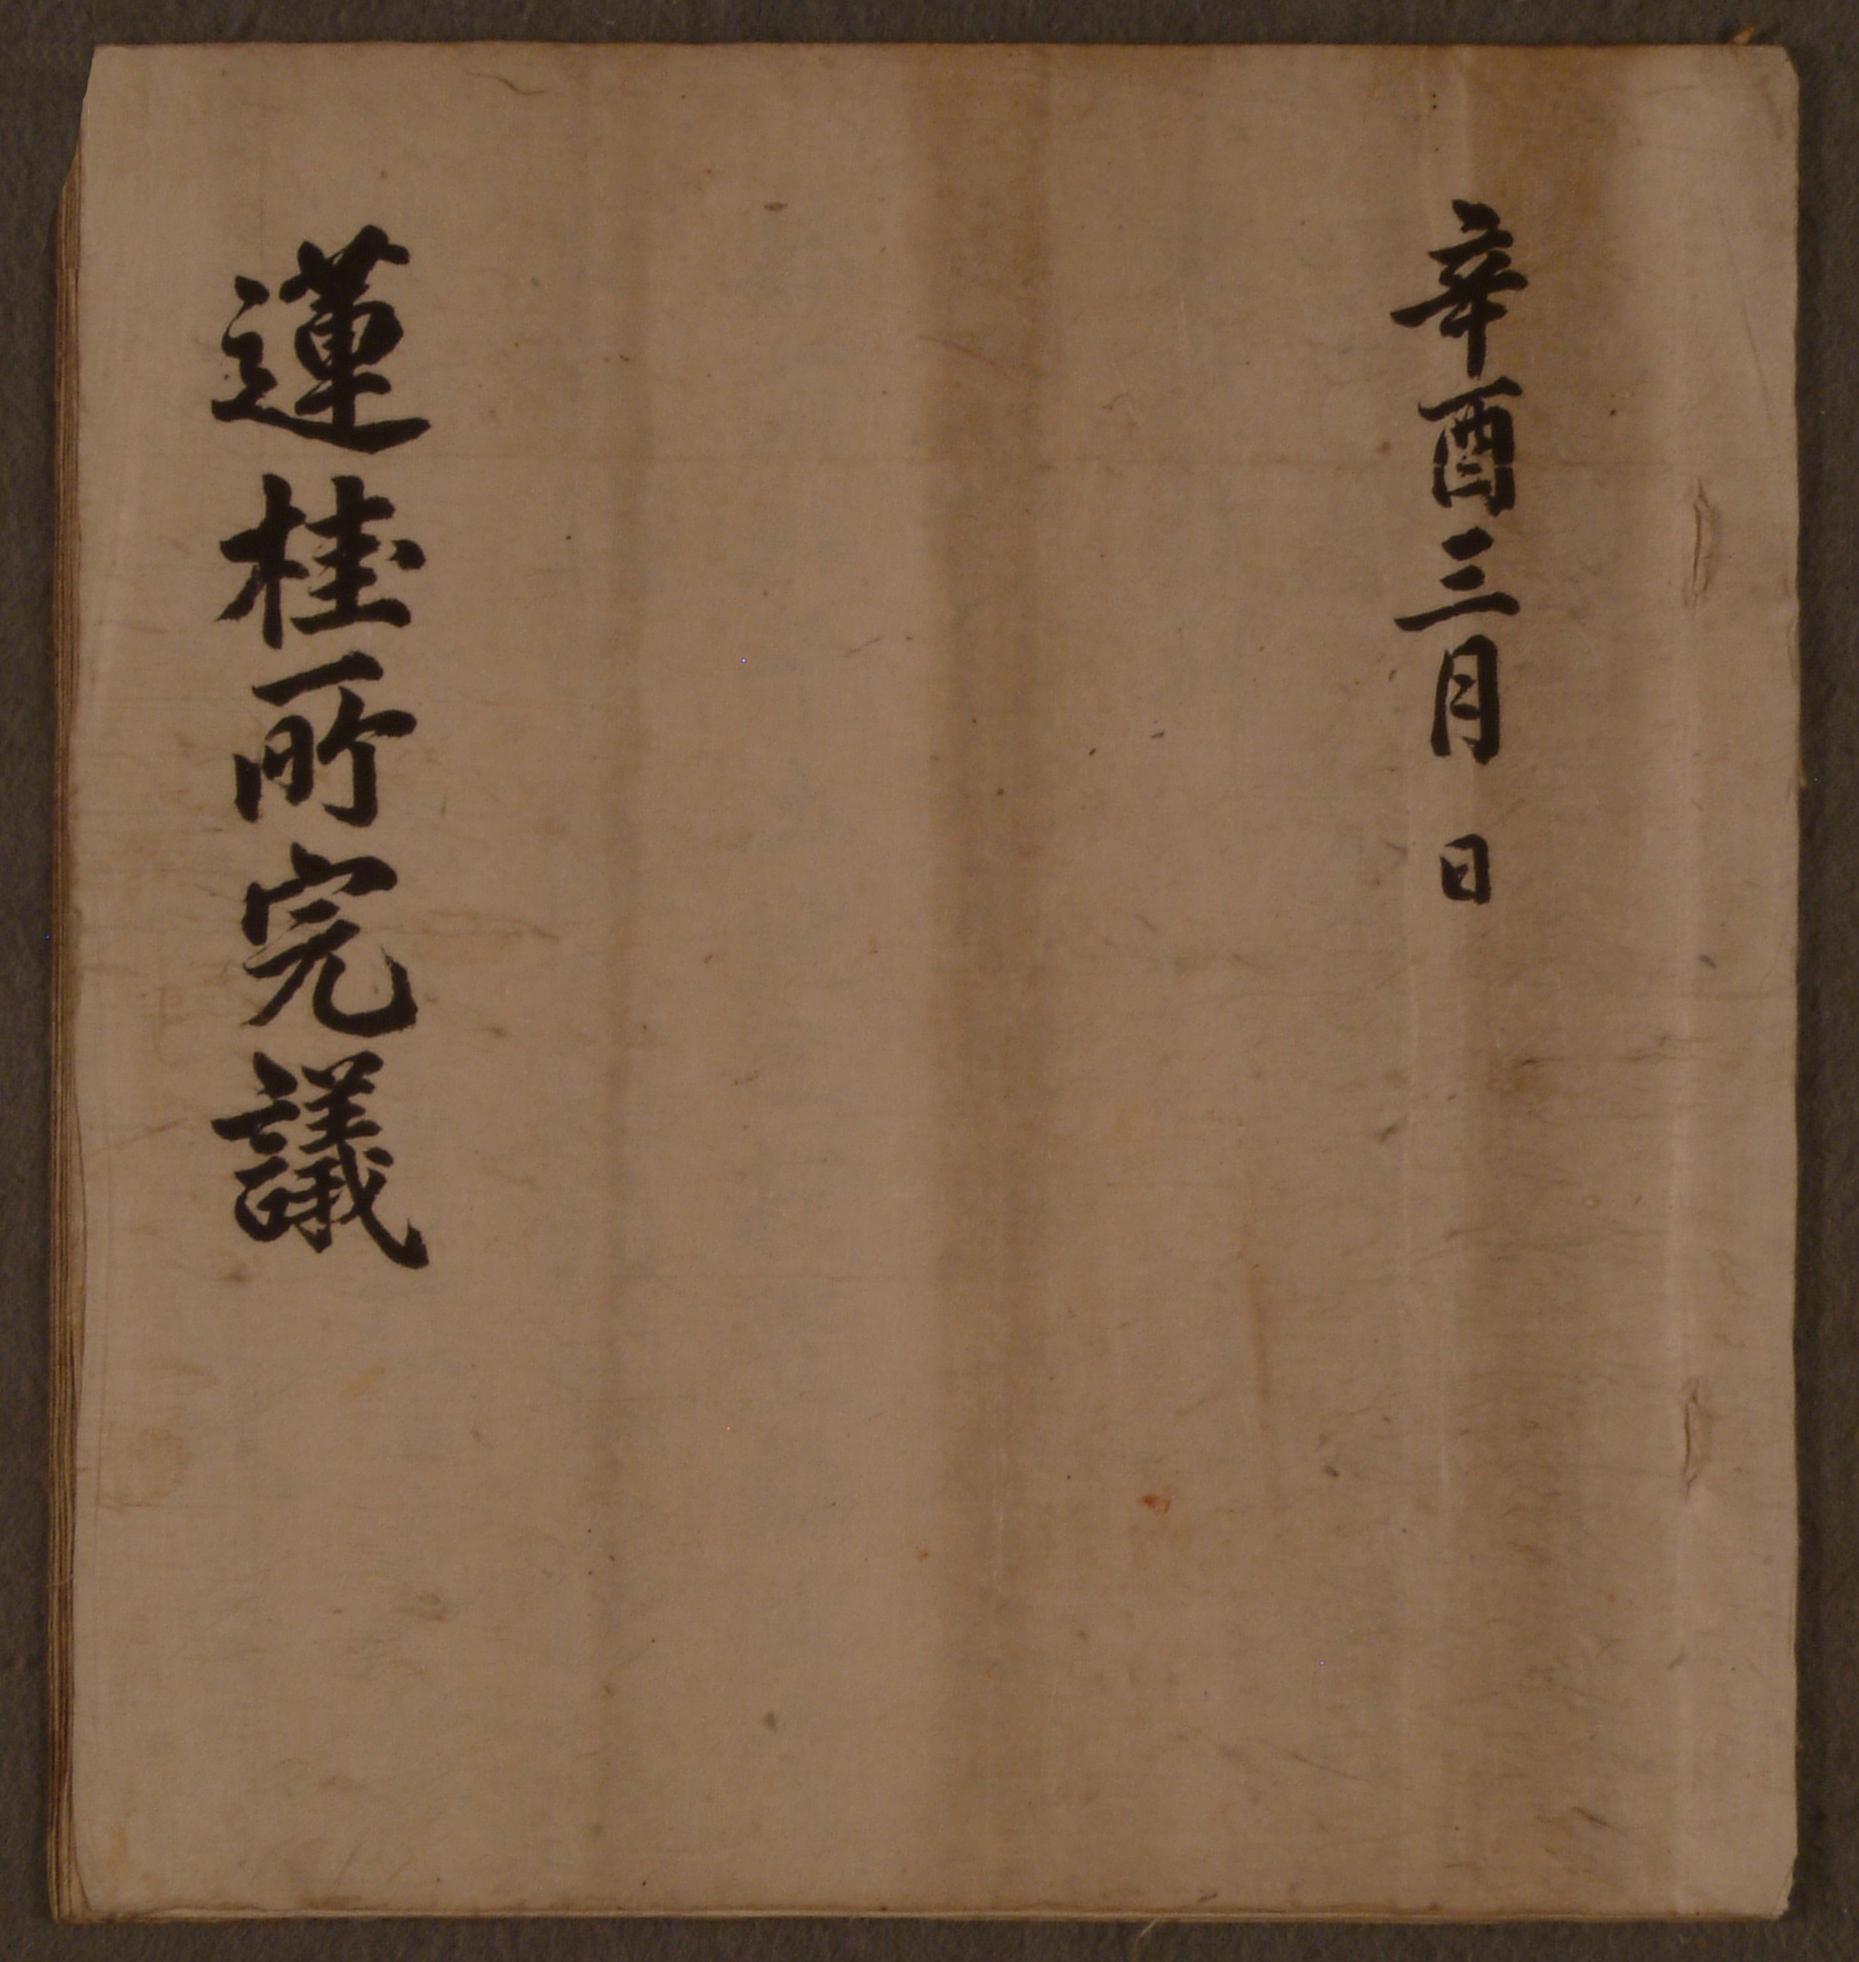 辛酉三月 日
蓮桂所完議